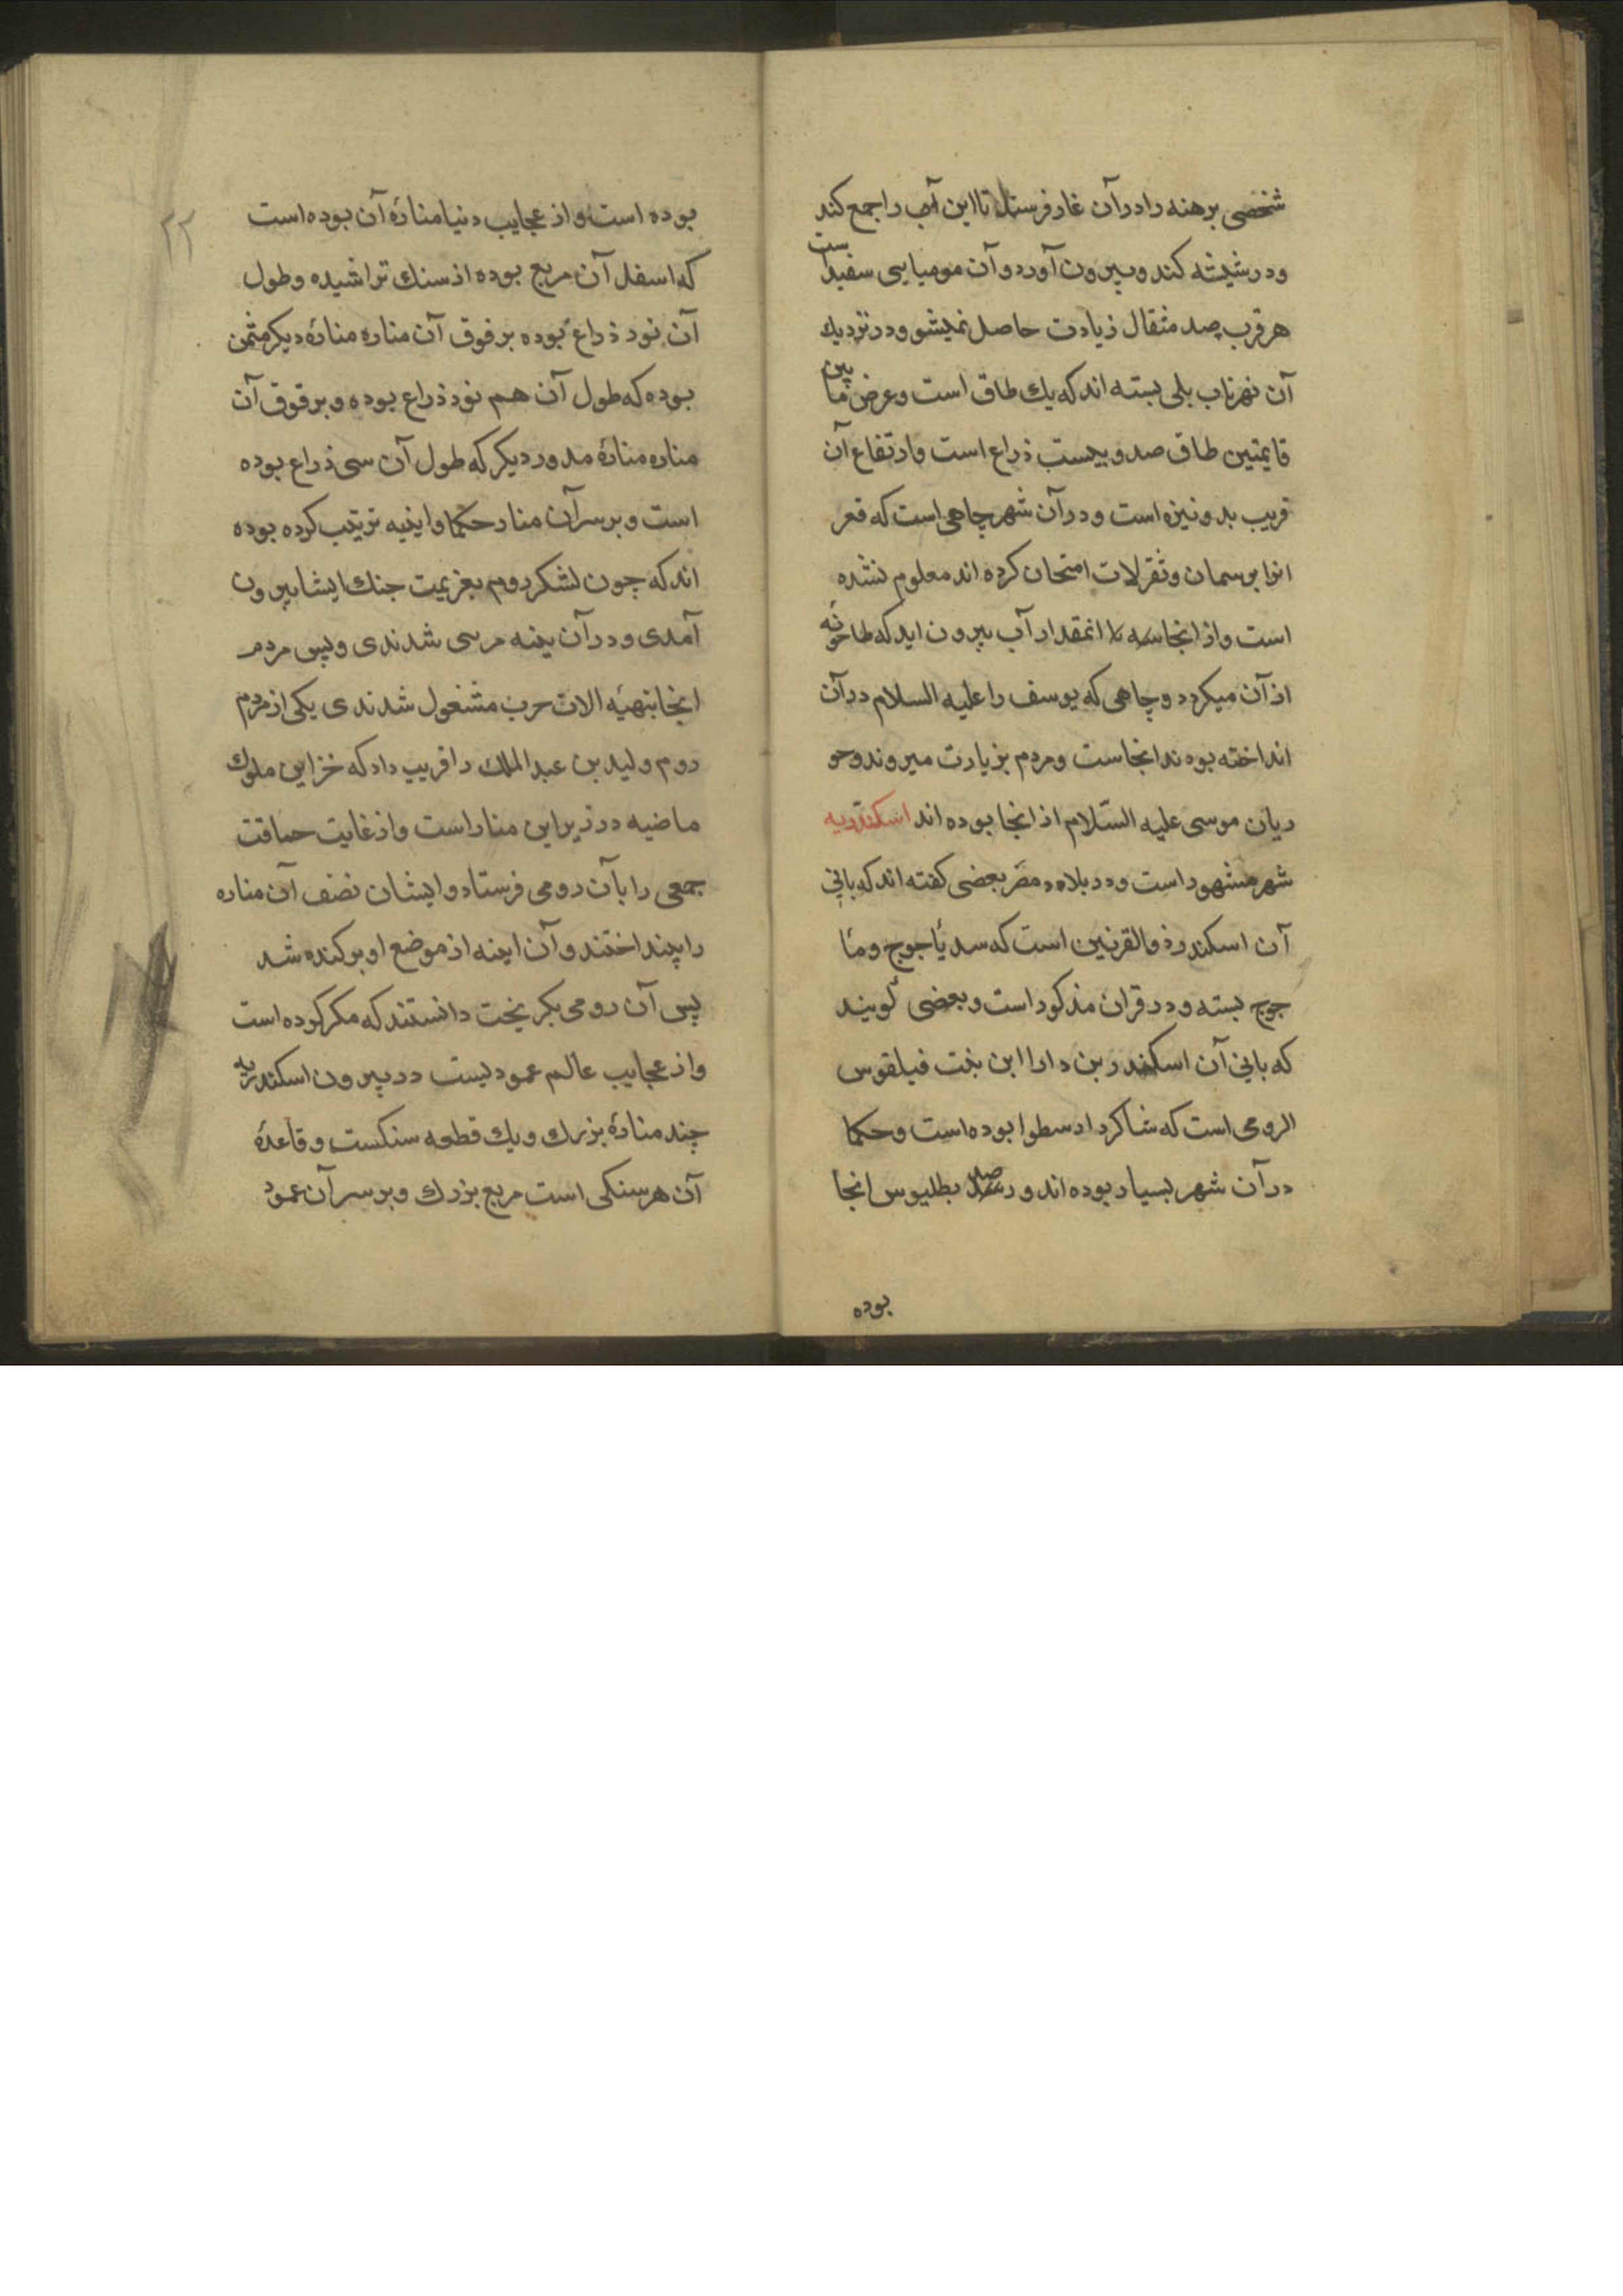 شخصی برهنه را در آن غار فرستند تا این آب را جمع کند
و در شیشه کند و بیرون آورد و آن مومیایی سفید است
هر قرب صد مثقال زیادت حاصل نمیشو و در نزدیك
آن نهرناب پلی بسته اند که یك طاق است و عرض ما بین
قایمتین طاق صد و بیست ذراع است و ارتفاع آن
قریب بدو نیزه است و در آن شهر چاهی است که قعر
انرا برسمان و ثقرلات امتحان کرده اند معلوم نشده
است و از انجا انمقدار آب بیرون اید که طاحونه
از آن میکردد و چاهی که یوسف را علیه السلام در آن
انداخته بودند انجاست و مردم بزیارت میروند و حو
ریان موسی علیه السّلام از انجا بوده اند اسکندریه
شهر مشهور است و در بلاد مصر بعضی کفته اند که بانی
آن اسکندر ذو القرنین است که سد یأجوج و مأ
جوج بسته و در قران مذکور است و بعضی کویند
که بانی آن اسکندر بن دارا ابن بنت فیلقوس
الرومی است که شاکرد ارسطوا بوده است و حکما
در آن شهر بسیار بوده اند و رصد بطلیوس انجا
بوده
۲۲
بوده است و از عجایب دنیا منارهٔ آن بوده است
که اسفل آن مربع بوده از سنك تراشیده و طول
آن نود ذراع بوده بر فوق آن مناره منارهٔ دیکر مثمن
بوده که طول آن هم نود ذراع بوده و بر فوق آن
مناره منارهٔ مدور دیکر که طول آن سی ذراع بوده
است و بر سر آن منار حکما واینیه ترتیب کرده بوده
اند که چون لشکر روم بعزیمت جنك ایشا بیرون
آمدی و در آن یینه مرسی شدندی و پس مردم
انجا بتهیّه الات حرب مشغول شدندی یکی از مردم
روم ولید بن عبد الملك را فریب داد که خزاین ملوك
ماضیه در زیر این منار است و از غایت حماقت
جمعی را بآن رومی فرستاد و ایشان نصف آن مناره
را بینداختند و آن اینه از موضع او برکنده شد
پس آن رومی بکریخت دانستند که مکر کرده است
و از عجایب عالم عمودیست در بیرون اسکندریه
چند منارهٔ بزرك و یك قطعه سنکست و قاعدهٔ
آن هر سنکی است مربع بزرك و بر سر آن عمود